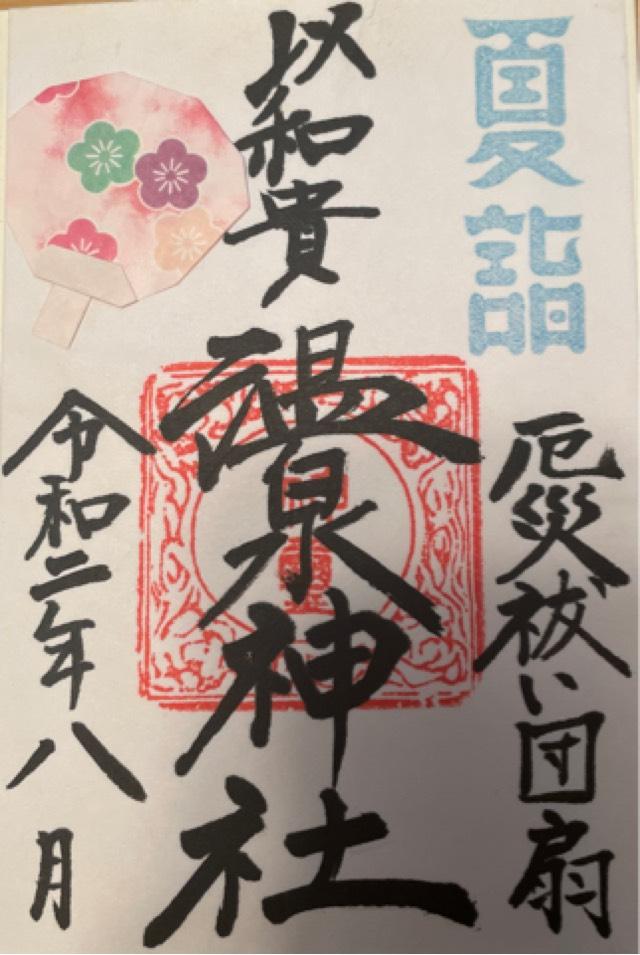 夏詣
厄災祓い団扇
以和貴
温泉神社
令和二年八月